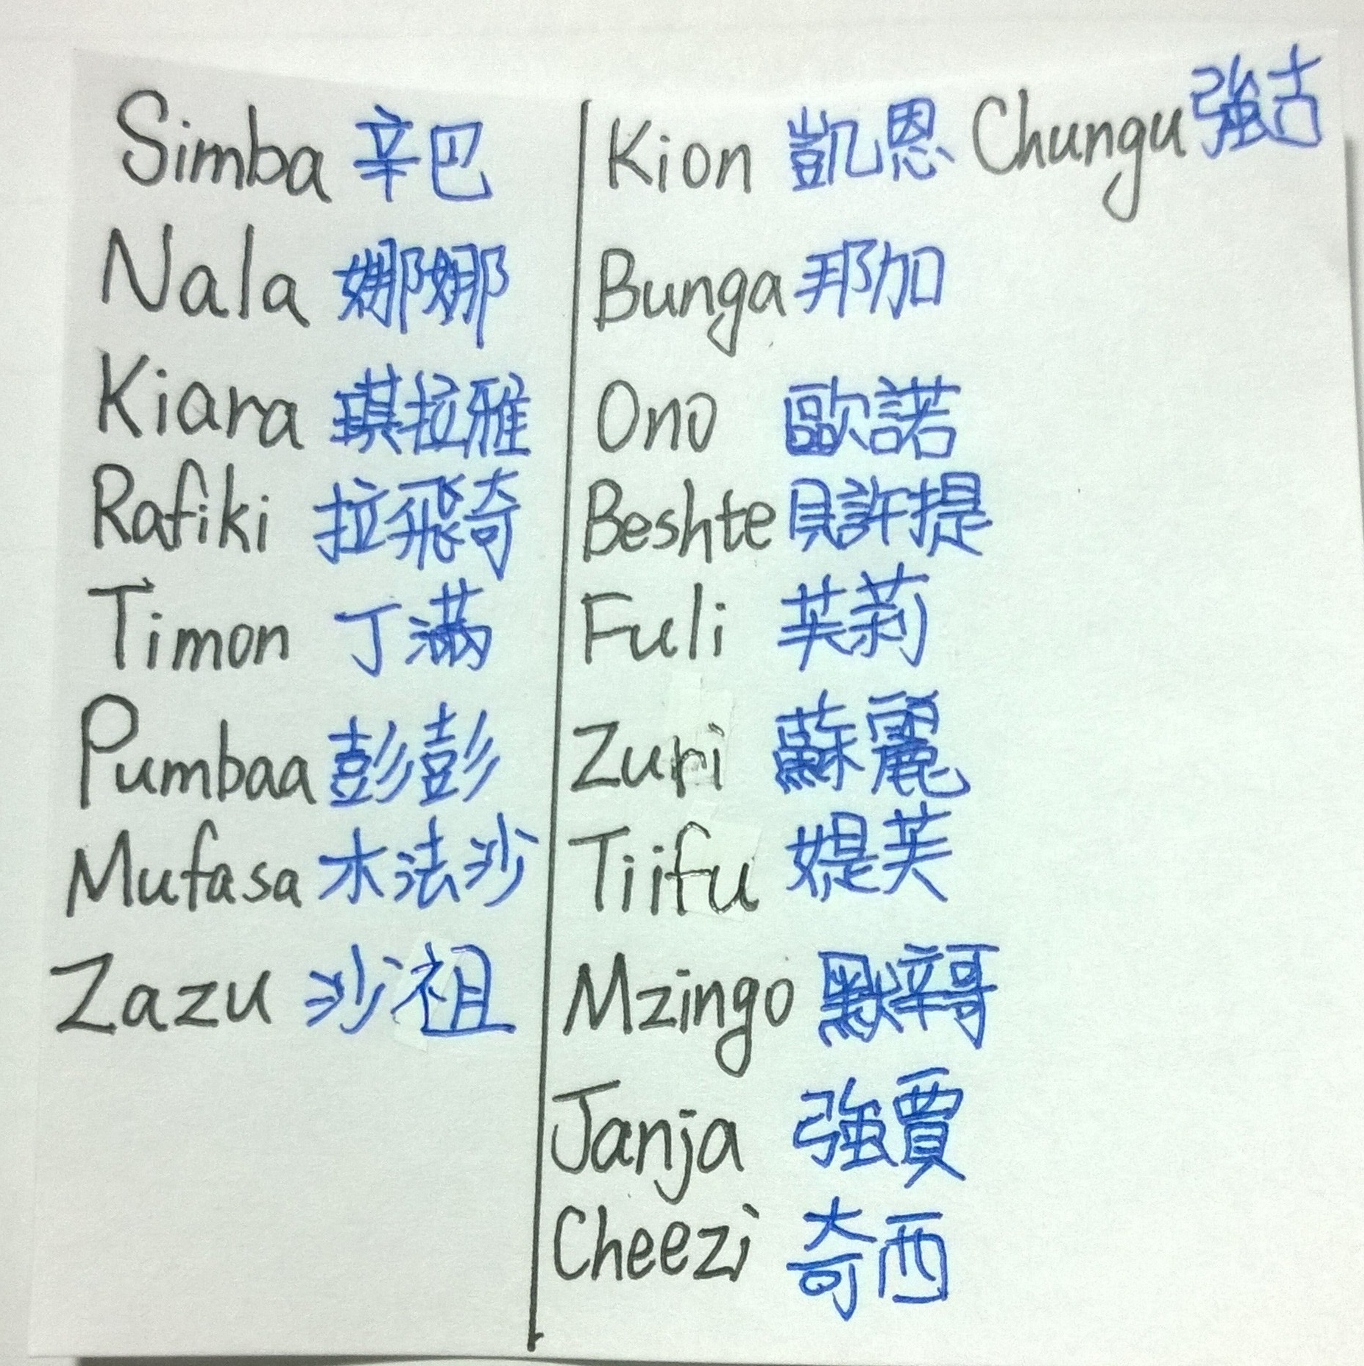 Simba 辛巴
Nala 娜娜
Kiara 琪拉雅
Rafiki 拉飛奇
Timon 丁滿
Pumbaa 彭彭
Mufasa 木法沙
Zazu 沙祖
Kion 凱恩 Chungu 強古
Bunga 邦加
Ono 歐諾
Beshte 貝許提
Fuli 芙莉
Zuri 蘇麗
Tiifu 媞芙
Mzingo 默辛哥
Janja 強賈
Cheezi 奇西